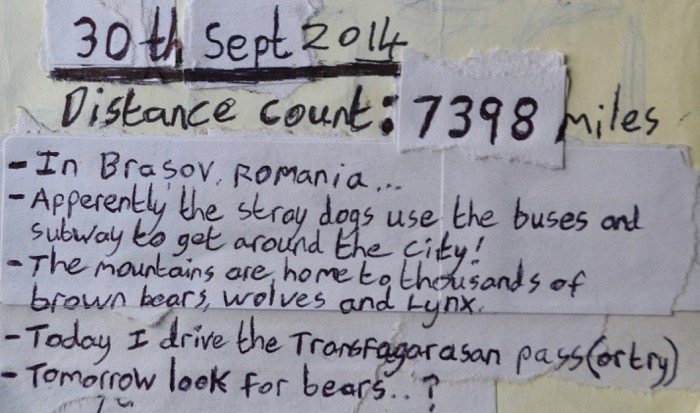 30th Sept 2014
Distance count: 7398 miles
- In Brasov, Romania...
- Apperently the stray dogs use the buses and
subway to get around the city!
- The mountains are home to thousands of
brown bears, wolves and Lynx.
- Today I drive the Transfagarasan pass (or try)
- Tomorrow look for bears..?